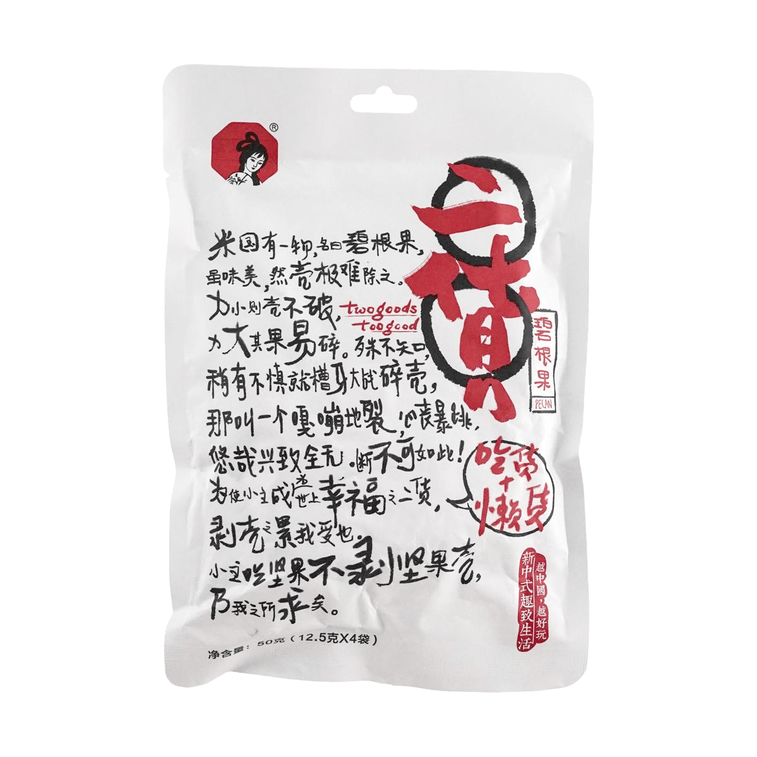 ®
二货
碧根果
PECAN
米国有一物,名曰碧根果,
虽味美,然壳极难除之。
力小则壳不破,
twogoods
toogood
力大其果易碎。殊不知,
稍有不慎就槽牙大战碎壳,
那叫一个嘎嘣地裂,心丧暴跳,
悠哉兴致全无。断不可如此!
为使小主成当世上幸福之二货,
剥壳之累我受也,
小主吃坚果不剥坚果壳,
乃我之所求矣。
吃货
+
懒货
越中國,越好玩
新中式趣致生活
净含量:50克(12.5克X4袋)